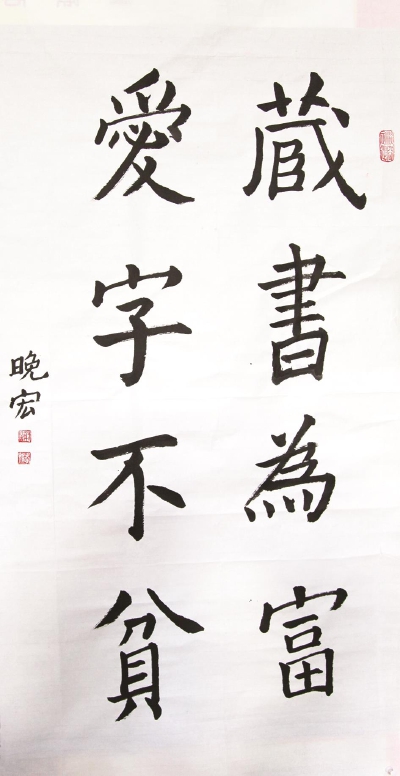 蔵書為富
愛字不貧
晚宏